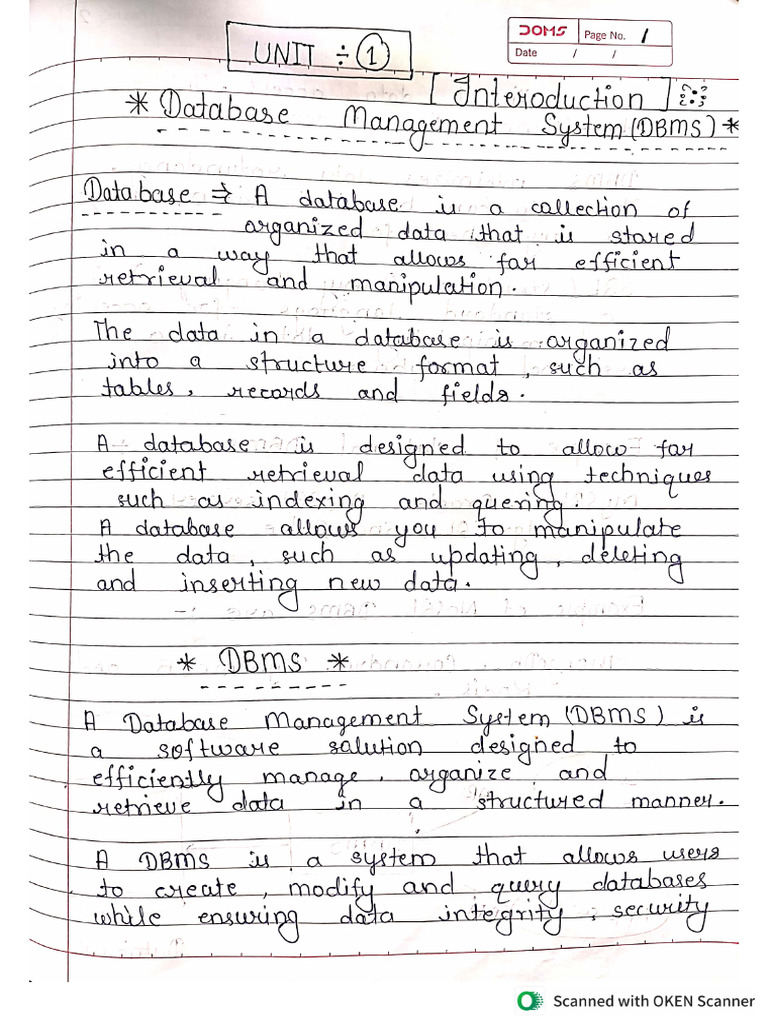 DOMS Page No. 1
Date / /
UNIT ÷ 1
[Interoduction]
* Database Management System (DBMS) *
Database ⇒ A database is a collection of
organized data that is stored
in a way that allows for efficient
retrieval and manipulation.
The data in a database is organized
into a structure format, such as
tables, records and fields.
A database is designed to allow for
efficient retrieval data using techniques
such as indexing and quering.
A database allows you to manipulate
the data, such as updating, deleting
and inserting new data.
* DBMS *
A Database Management System (DBMS) is
a software solution designed to
efficiently manage, organize and
retrieve data in a structured manner.
A DBMS is a system that allows users
to create, modify and query databases
while ensuring data integrity, security
Scanned with OKEN Scanner